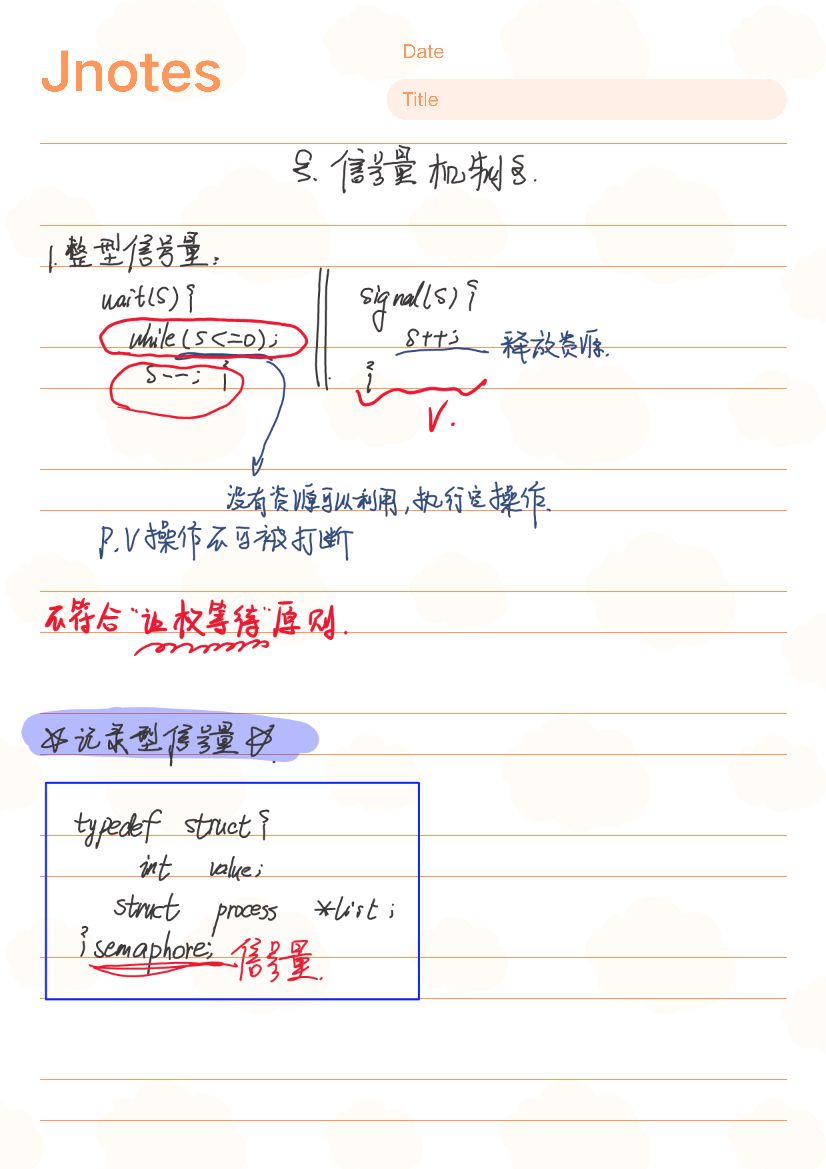 Jnotes
Date
Title
§. 信号量机制§.
1. 整型信号量:
wait(S) {
while(S<=0);
S--; }
signal(S) {
S++;
释放资源.
}
V.
没有资源可以利用,执行空操作.
P.V操作不可被打断
不符合“让权等待”原则.
☆记录型信号量☆.
typedef struct {
int value;
struct process *list;
} semaphore;
信号量.